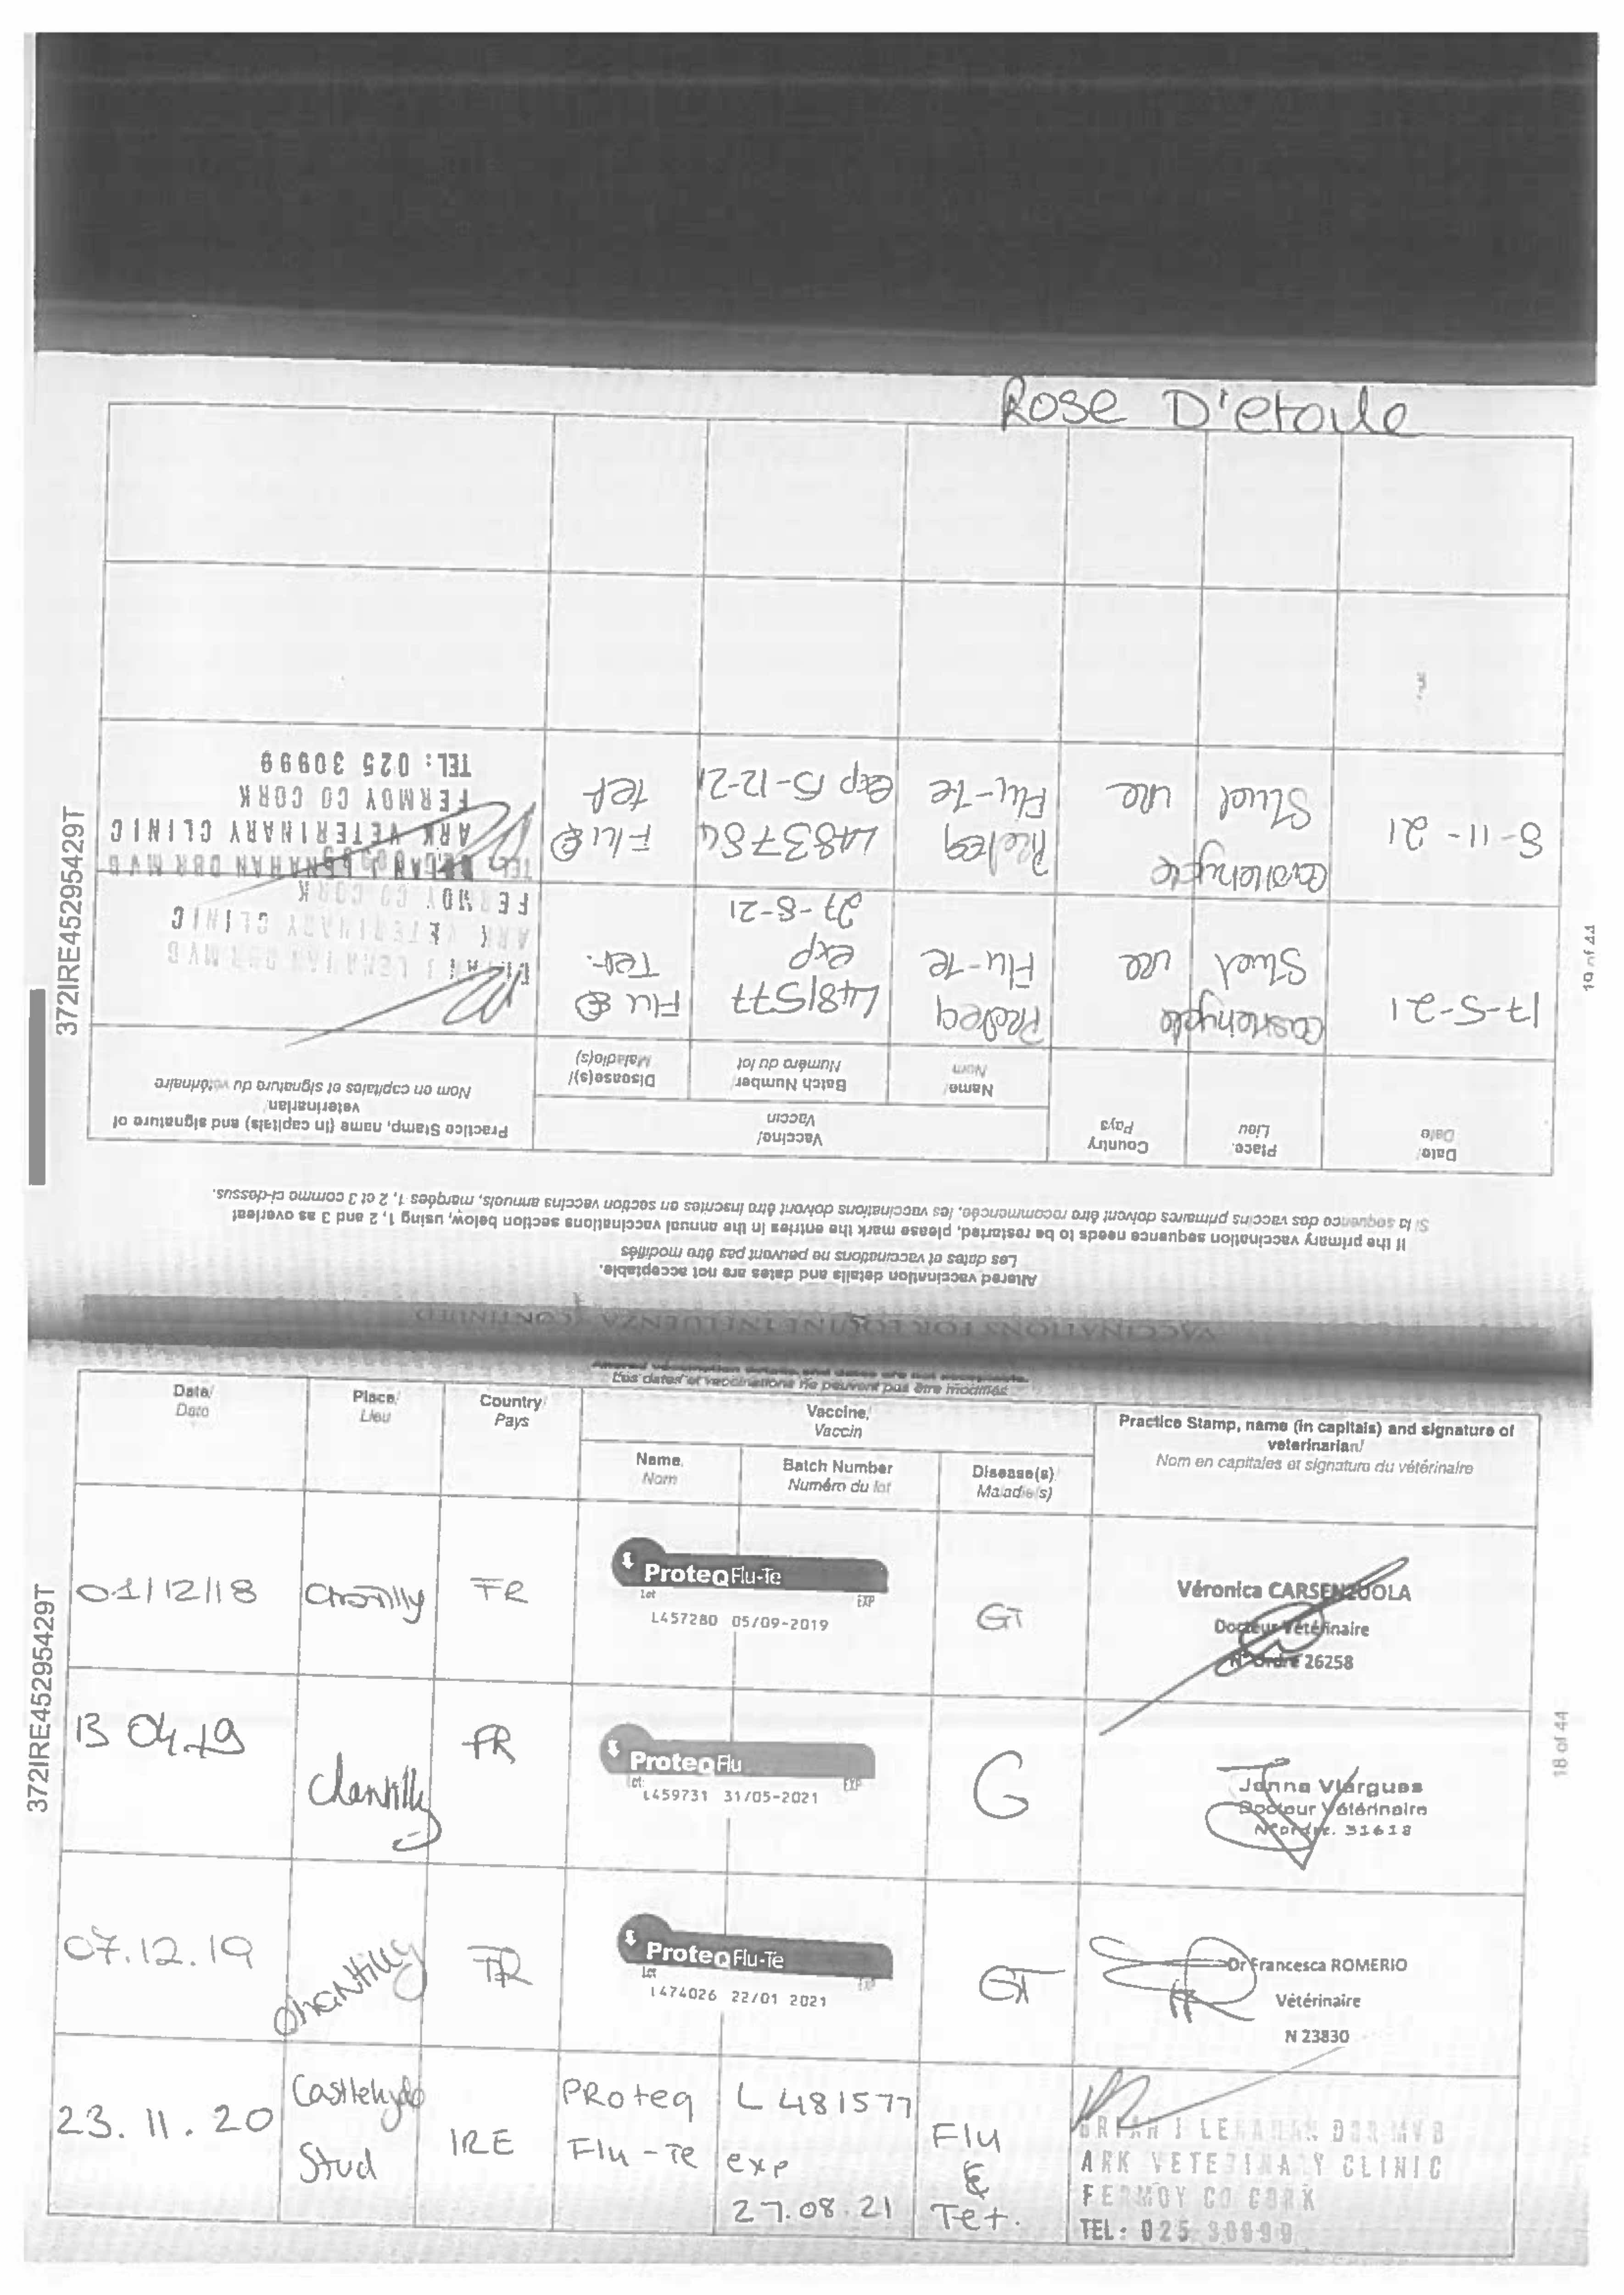 Rose D'etoile
VACCINATIONS FOR EQUINE INFLUENZA (CONTINUED)
Altered vaccination details and dates are not acceptable.
Les dates et vaccinations ne peuvent pas être modifiés
If the primary vaccination sequence needs to be restarted, please mark the entries in the annual vaccinations section below, using 1, 2 and 3 as overleaf
Si la séquence des vaccins primaires doivent être recommencée, les vaccinations doivent être inscrites en section vaccins annuels, marquées 1, 2 et 3 comme ci-dessus.
Date/
Date
Place/
Lieu
Country
Pays
Vaccine/
Vaccin
Name/
Nom
Batch Number/
Numéro du lot
Disease(s)/
Maladie(s)
Practice Stamp, name (in capitals) and signature of
veterinarian/
Nom en capitales et signature du vétérinaire
17-5-21
Castlehyde
Stud
IRE
Proteq
Flu-Te
L481577
exp
27-8-21
Flu &
Tet.
ARK VETERINARY CLINIC
FERMOY CO CORK
8-11-21
Castlehyde
Stud
IRE
Proteq
Flu-Te
L483784
exp 15-12-21
Flu &
Tet
BRIAN J LENAHAN DBR MVB
ARK VETERINARY CLINIC
FERMOY CO CORK
TEL: 025 30999
19 of 44
372IRE45295429T
Altered vaccination details and dates are not acceptable.
Les dates et vaccinations ne peuvent pas être modifiés
Date/
Date
Place/
Lieu
Country/
Pays
Vaccine/
Vaccin
Name/
Nom
Batch Number
Numéro du lot
Disease(s)
Maladie(s)
Practice Stamp, name (in capitals) and signature of
veterinarian/
Nom en capitales et signature du vétérinaire
01/12/18
Chantilly
FR
ProteqFlu-Te
Lot EXP
L457280 05/09-2019
GT
Véronica CARSENZUOLA
Docteur Vétérinaire
N° Ordre 26258
13 04.19
Chantilly
FR
ProteqFlu
Lot: EXP
L459731 31/05-2021
G
Janna Vlargues
Docteur Vétérinaire
N°ordre. 31618
07.12.19
Chantilly
FR
ProteqFlu-Te
Lot EXP
L474026 22/01 2021
GT
Dr Francesca ROMERIO
Vétérinaire
N 23830
23.11.20
Castlehyde
Stud
IRE
PRoteq
Flu-Te
L481577
exp
27.08.21
Flu
&
Tet.
BRIAN J LENAHAN DBR MVB
ARK VETERINARY CLINIC
FERMOY CO CORK
TEL: 025 30999
18 of 44
372IRE45295429T